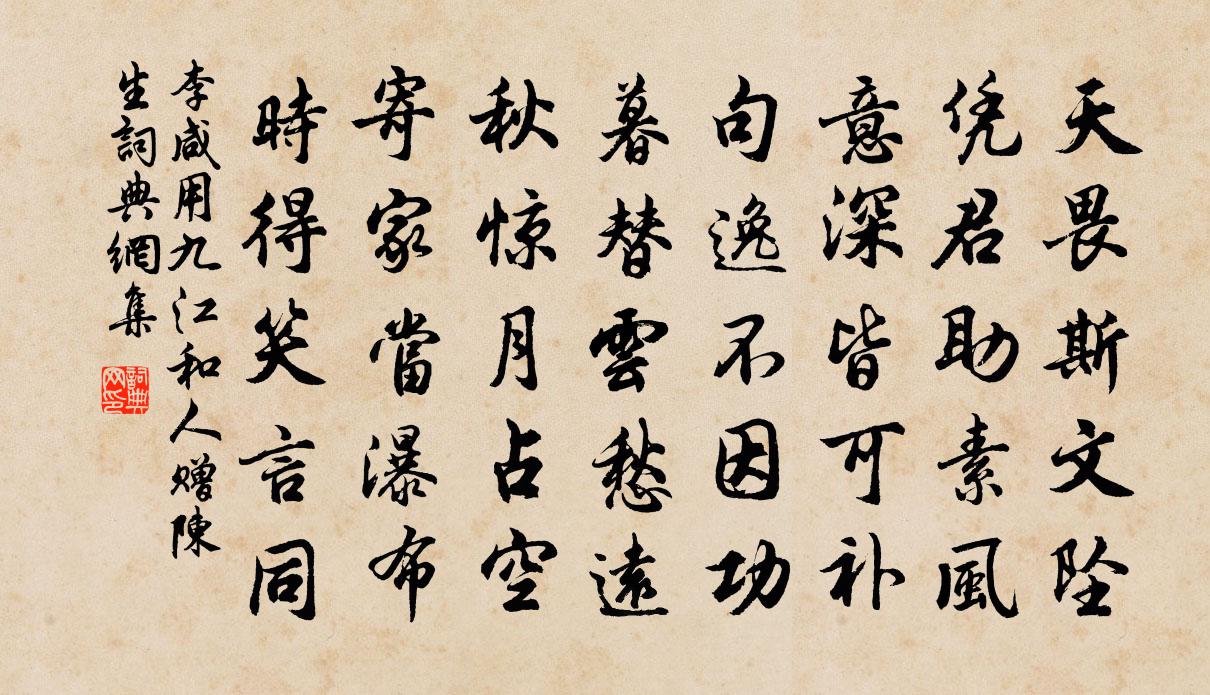 天畏斯文坠
凭君助素風
意深皆可补
句逸不因功
暮替雲愁遠
秋惊月占空
寄家當瀑布
時得笑言同
李咸用九江和人赠陳
生詞典網集
詞典
网印